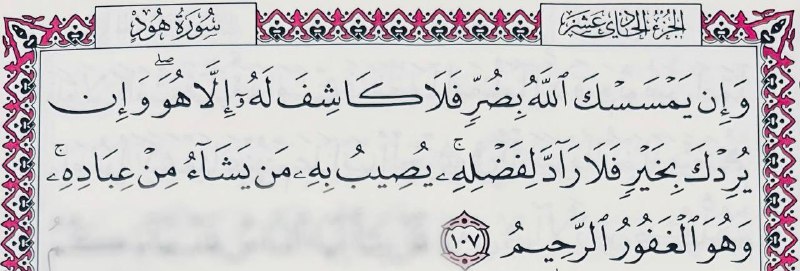 سُورَةُ هُودٍ
الجُزْءُ الحَادِيَ عَشَرَ
وَإِن يَمْسَسْكَ ٱللَّهُ بِضُرٍّ فَلَا كَاشِفَ لَهُۥٓ إِلَّا هُوَ ۖ وَإِن
يُرِدْكَ بِخَيْرٍ فَلَا رَآدَّ لِفَضْلِهِۦ ۚ يُصِيبُ بِهِۦ مَن يَشَآءُ مِنْ عِبَادِهِۦ ۚ
وَهُوَ ٱلْغَفُورُ ٱلرَّحِيمُ ١٠٧